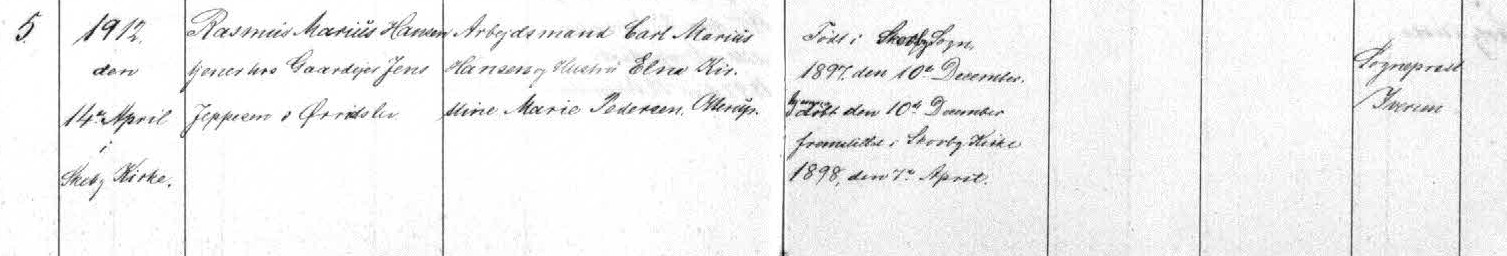 5.
1912.
den
14de April
i
Skeby Kirke.
Rasmus Marius Hansen
tjener hos Gaardejer Jens
Jeppesen i Ørridslev
Arbejdsmand Carl Marius
Hansen og Hustru Elne Kir-
stine Marie Pedersen, Otterup.
Født i Skovby Sogn,
1897. den 10de December.
døbt den 10de December
fremstillet i Skovby Kirke
1898, den 7de April.
Sognepræst
Iversen